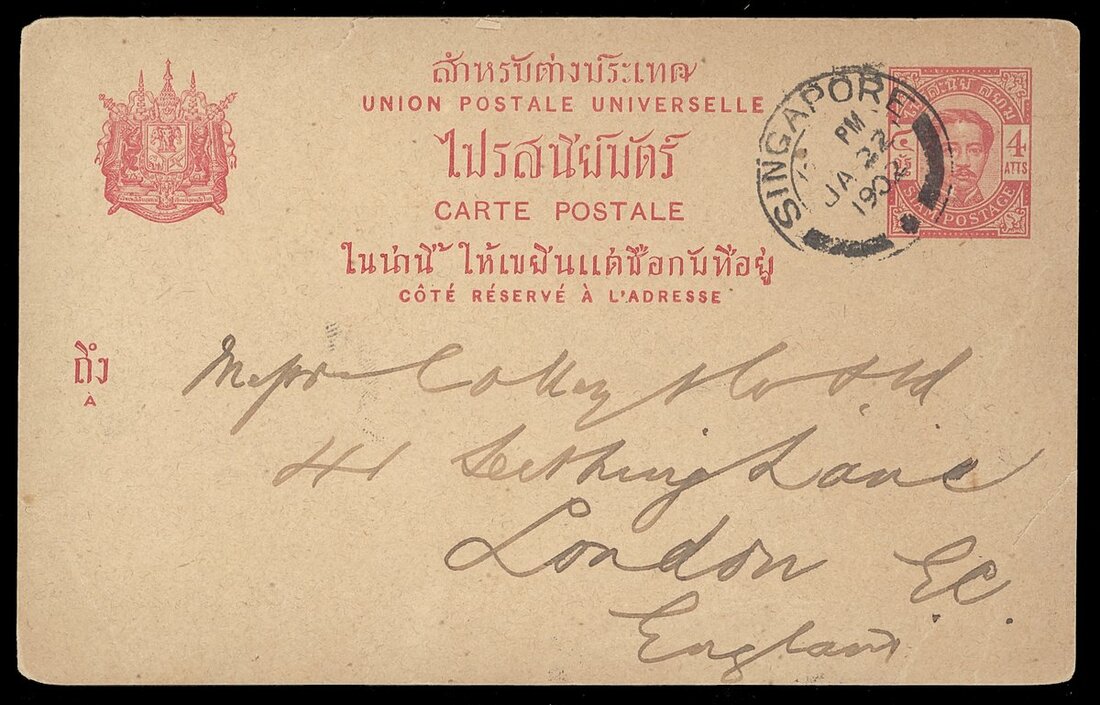 สำหรับต่างประเทศ
UNION POSTALE UNIVERSELLE
ไปรสนีย์บัตร์
CARTE POSTALE
ในน่านี้ ให้เขยีนแต่ชื่อกับที่อยู่
CÔTÉ RÉSERVÉ À L'ADRESSE
SINGAPORE
PM
JA 22
1902
4
ATTS
POSTAGE
ถึง
À
Messrs
41 Seething Lane
London E.C.
England